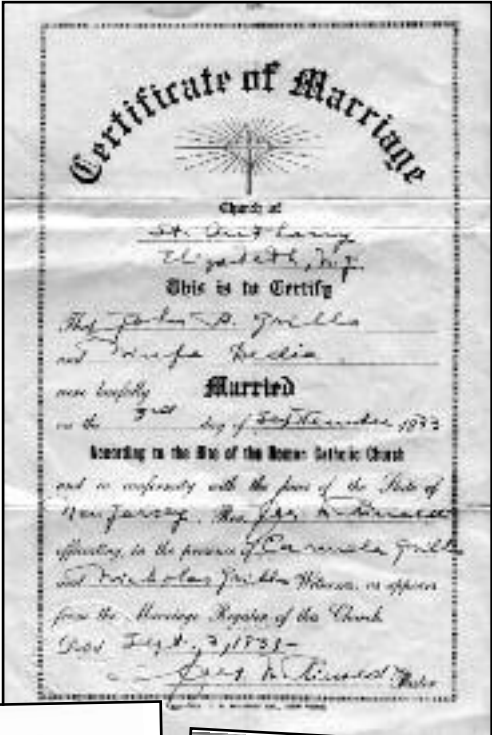 Certificate of Marriage
Church of
St. Anthony
Elizabeth, N.J.
This is to Certify
That John A. Grillo
and
were lawfully Married
on the 3rd day of September 1933
According to the Rite of the Roman Catholic Church
and in conformity with the laws of the State of
New Jersey, Rev.
officiating, in the presence of Carmela Grillo
and Nicholas Grillo Witnesses, as appears
from the Marriage Register of this Church.
Dated Sept. 3, 193
Pastor